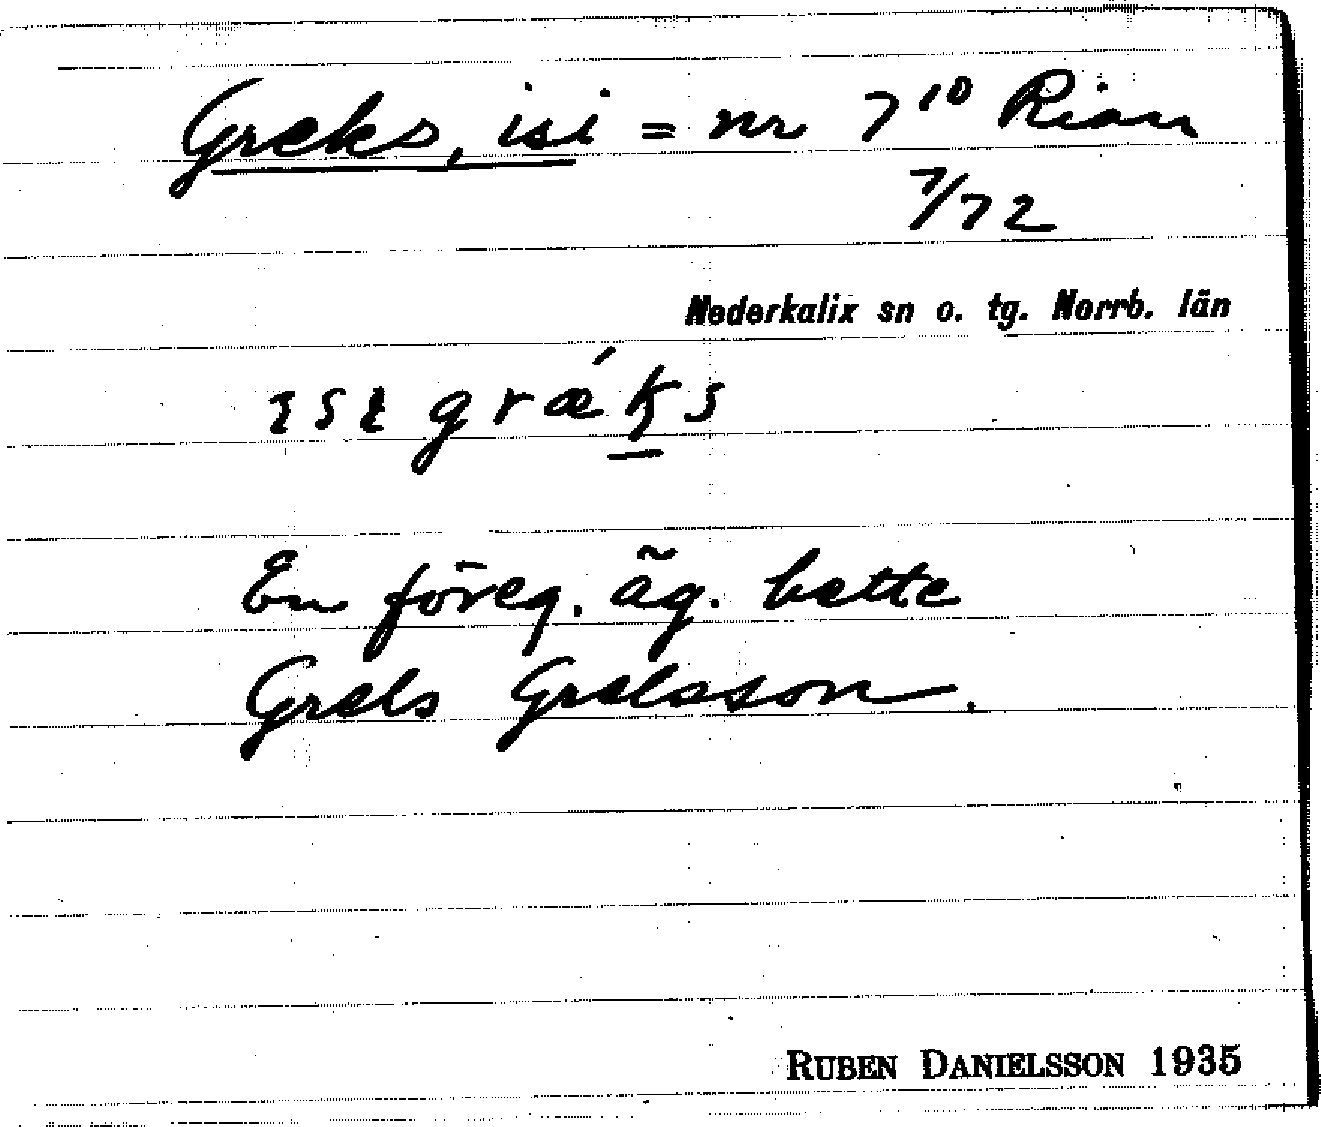 Greks, isi = nr 7¹⁰ Rian
7/72
Nederkalix sn o. tg. Norrb. län
ɪsɪ græ´ks
En föreg. äg. hette
Grels Grelsson.
RUBEN DANIELSSON 1935